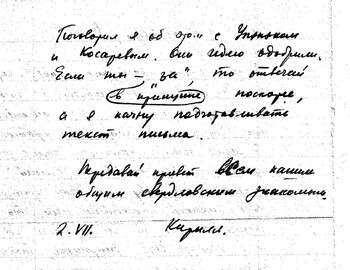 Поговорил я об этом с
и Косаревым. Они идею одобрили.
Если ты — "за", то отвечай
в принципе поскорее,
а я начну подготавливать
текст письма.
Передавай привет всем нашим
общим свердловским знакомым.
2.VII. Кирилл.